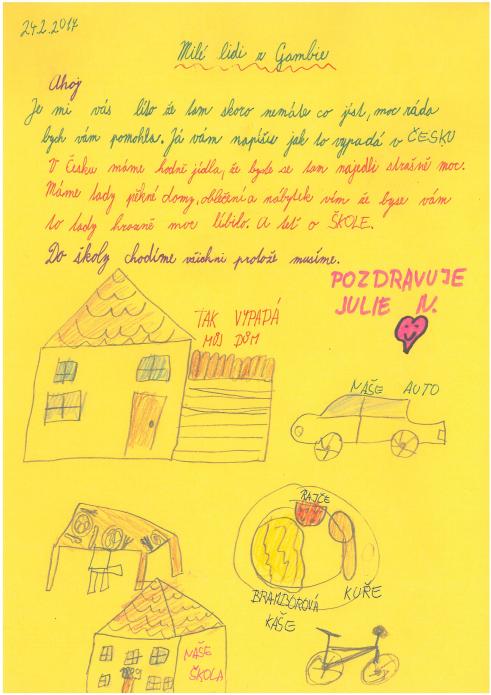 24.2.2017
Milé lidi z Gambie
Ahoj
Je mi vás líto že tam skoro nemáte co jíst, moc ráda
bych vám pomohla. Já vám napíšu jak to vypadá v ČESKU
V Česku máme hodně jídla, že byste se tam najedli strašně moc.
Máme tady pěkné domy, oblečení a nábytek vím že byse vám
to tady hrozně moc líbilo. A teť o ŠKOLE.
Do školy chodíme všichni protože musíme.
POZDRAVUJE
JULIE N.
TAK VYPADÁ
MŮJ DŮM
NAŠE AUTO
RAJČE
BRAMBOROVÁ
KAŠE
KUŘE
NAŠE
ŠKOLA